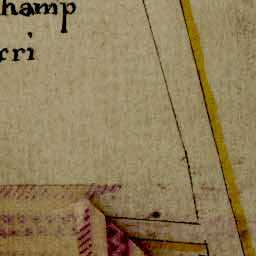 hamp
cri